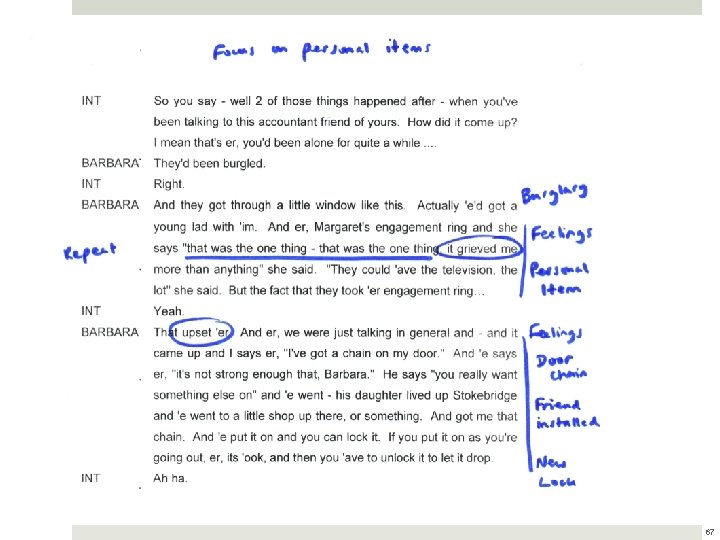 Focus on personal items
INT So you say - well 2 of those things happened after - when you've
been talking to this accountant friend of yours. How did it come up?
I mean that's er, you'd been alone for quite a while ....
BARBARA They'd been burgled.
INT Right.
BARBARA And they got through a little window like this. Actually 'e'd got a
Burglary
young lad with 'im. And er, Margaret's engagement ring and she
Feelings
Repeat
says "that was the one thing - that was the one thing, it grieved me
more than anything" she said. "They could 'ave the television, the
Personal
lot" she said. But the fact that they took 'er engagement ring...
Item
INT Yeah.
BARBARA That upset 'er. And er, we were just talking in general and - and it
Feelings
came up and I says er, "I've got a chain on my door." And 'e says
Door
er, "it's not strong enough that, Barbara." He says "you really want
chain
something else on" and 'e went - his daughter lived up Stokebridge
Friend
and 'e went to a little shop up there, or something. And got me that
installed
chain. And 'e put it on and you can lock it. If you put it on as you're
going out, er, its 'ook, and then you 'ave to unlock it to let it drop.
New
INT Ah ha.
Lock
67